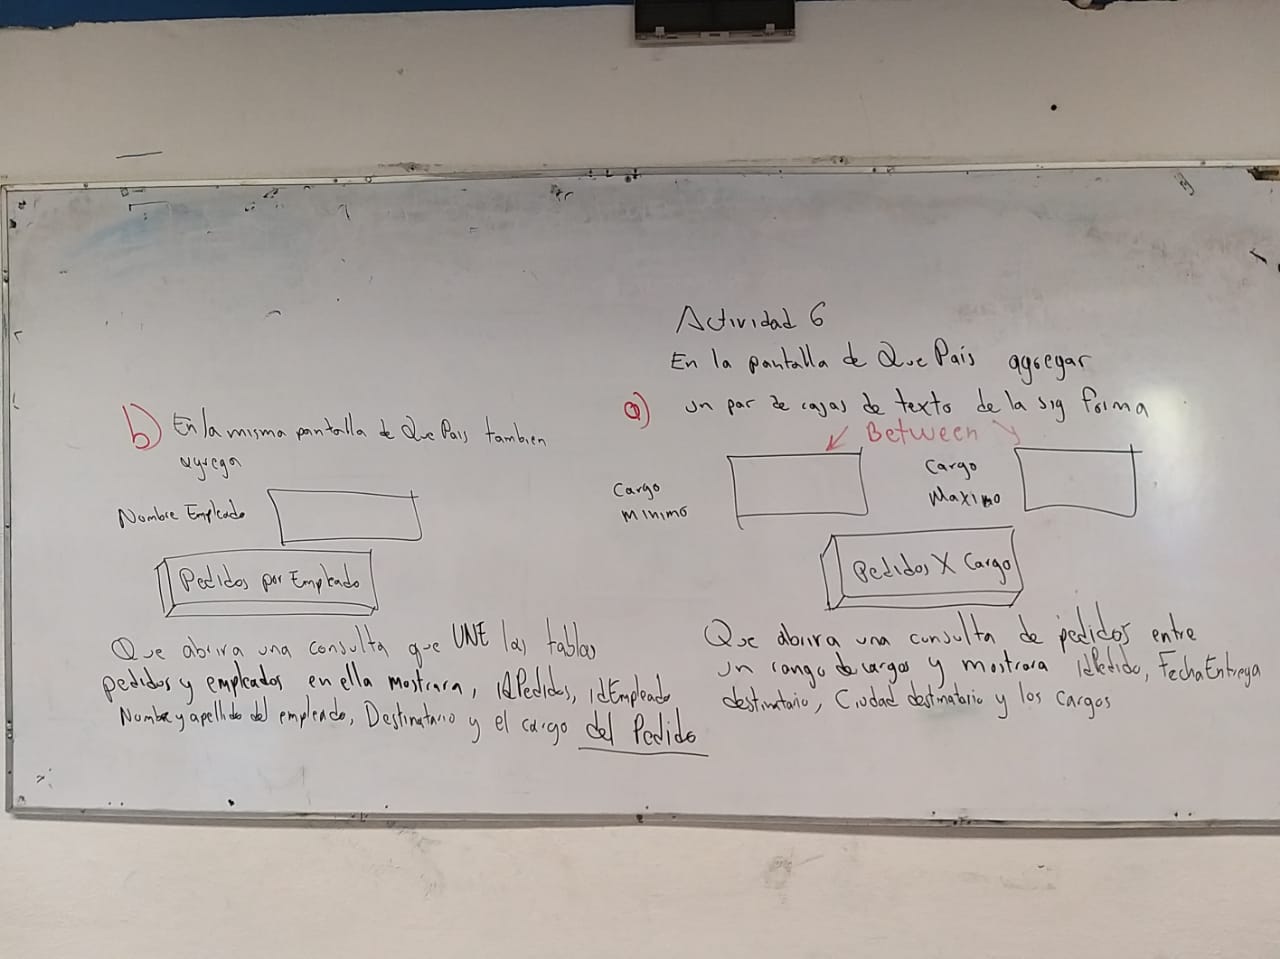 Actividad 6
En la pantalla de Que Pais agregar
a) un par de cajas de texto de la sig forma
Between
Cargo
Minimo
Cargo
Maximo
Pedidos X Cargo
Que abrira una consulta de pedidos entre
un rango de cargos y mostrara idPedido, FechaEntrega
destinatario, Ciudad destinatario y los cargos
b) En la misma pantalla de Que Pais tambien
agrega
Nombre Empleado
Pedidos por Empleado
Que abrira una consulta que UNE las tablas
pedidos y empleados en ella mostrara, idPedidos, idEmpleado
Nombre y apellido del empleado, Destinatario y el cargo del Pedido